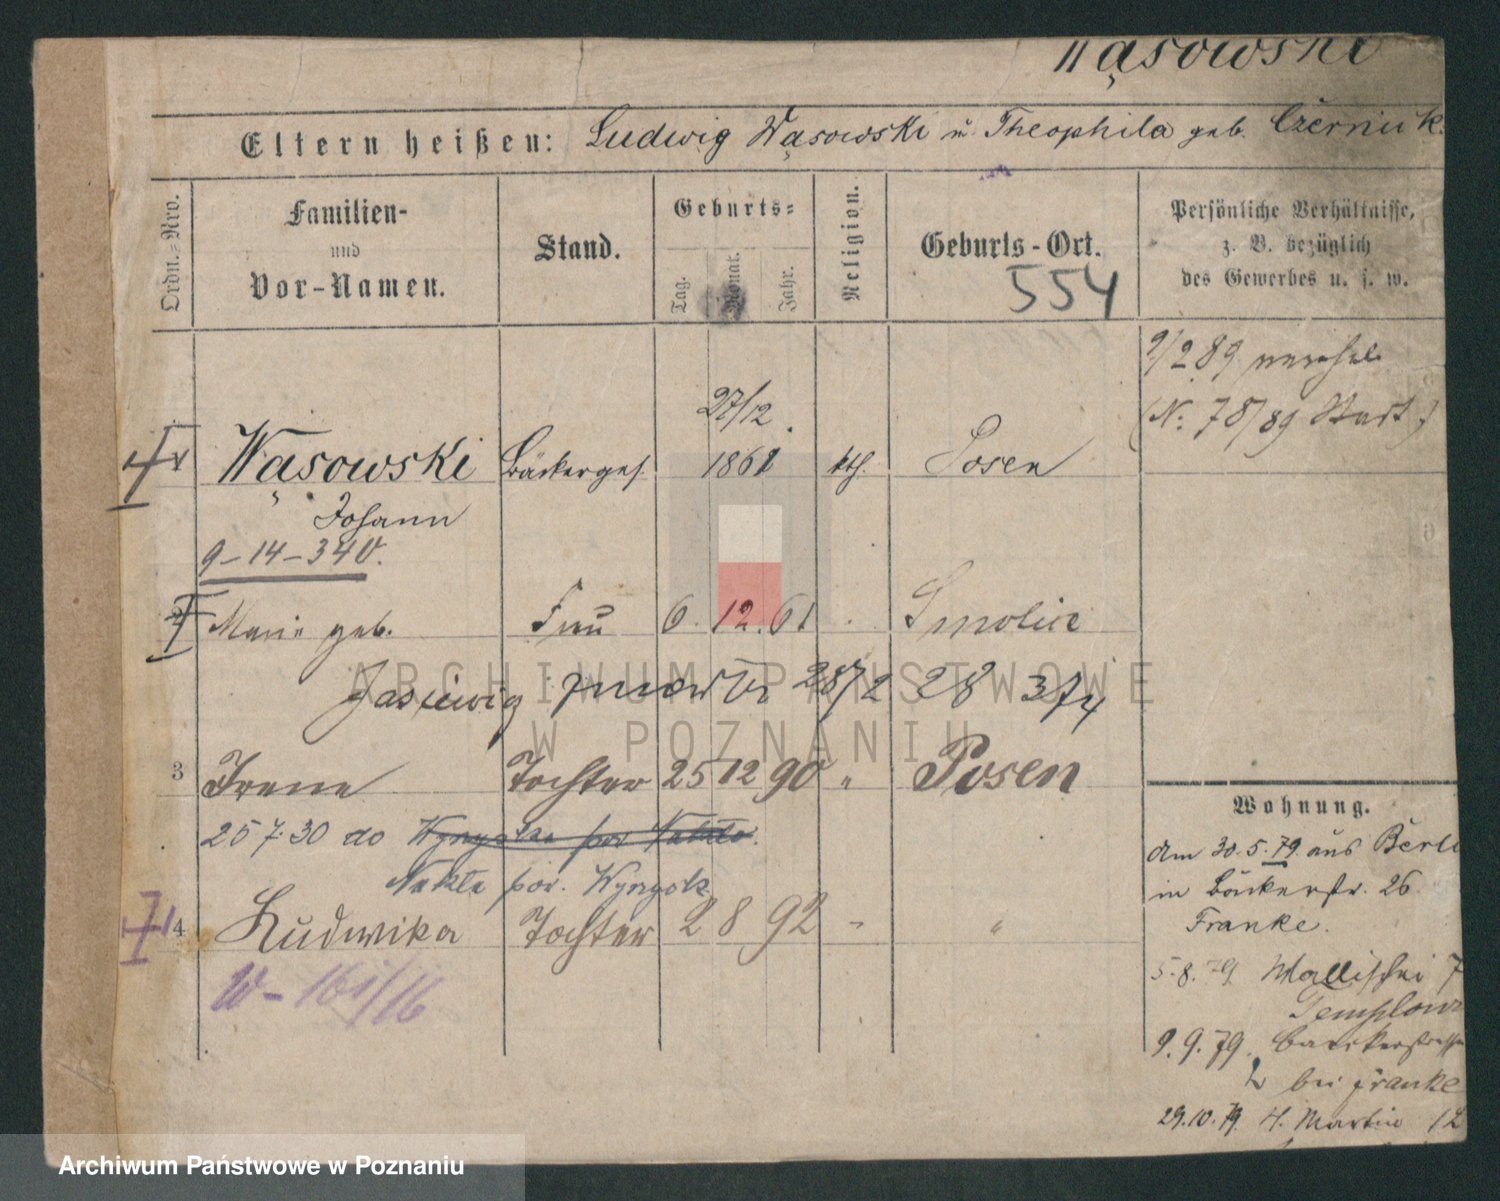 Wąsowski
Eltern heißen: Ludwig Wąsowski u. Theophila geb. Czerniak
Ordn.=Nro.
Familien-
und
Vor-Namen.
Stand.
Geburts=
Tag.
Monat.
Jahr.
Religion.
Geburts-Ort.
554
Persönliche Verhältnisse,
z. B. bezüglich
des Gewerbes u. s. w.
9/2 89
(N: 78/89 Start.)
27/12
1 Wąsowski Bäckerges. 1861 kth. Posen
Johann
9-14-340.
2 Marie geb. Frau 6. 12. 61 Smolice
28/2 28 374
3 Irene Tochter 25 12 90 " Posen
25 7. 30 do
Nakła pow. Wyrzysk
4 Ludwika Tochter 2 8 92 " "
W-161/16
Wohnung.
Am 30. 5. 79. aus Berli
in Bäckerstr. 26
Franke.
5. 8. 79. Wallischei 7
9. 9. 79. Baeckerstrasse
bei Franke
29. 10. 79. St. Martin 12
ARCHIWUM PAŃSTWOWE
W POZNANIU
Archiwum Państwowe w Poznaniu